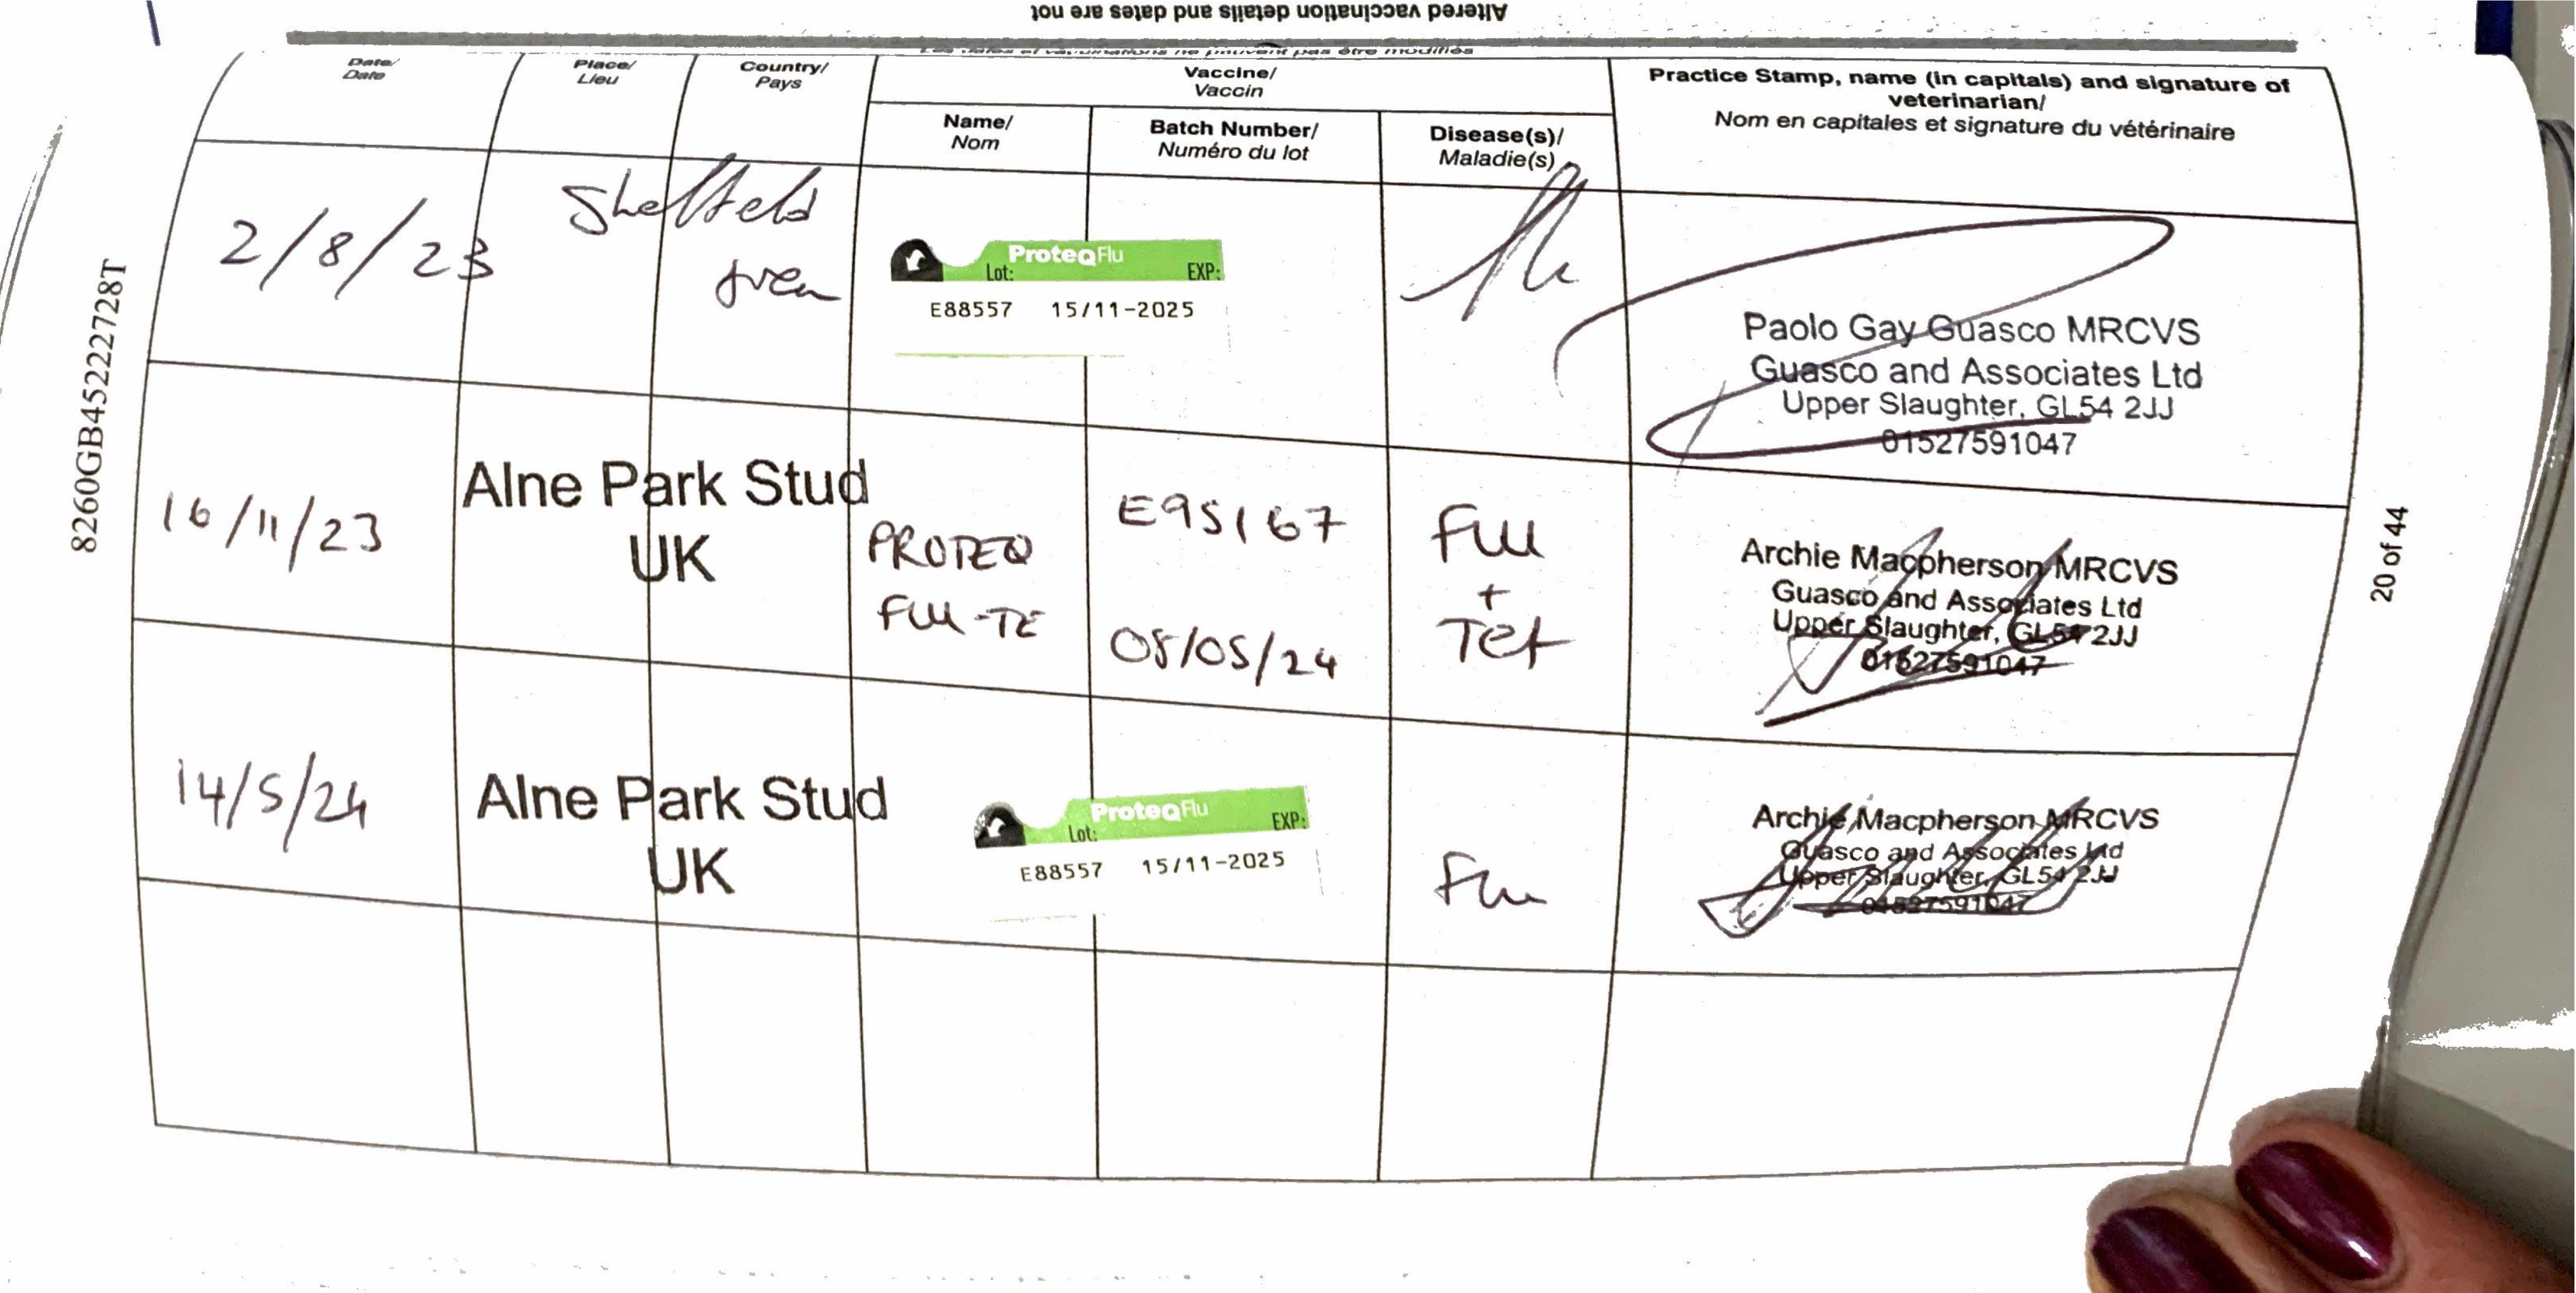 Altered vaccination details and dates are not
Les dates et vaccinations ne peuvent pas être modifiés
Date/
Date
Place/
Lieu
Country/
Pays
Vaccine/
Vaccin
Name/
Nom
Batch Number/
Numéro du lot
Disease(s)/
Maladie(s)
Practice Stamp, name (in capitals) and signature of
veterinarian/
Nom en capitales et signature du vétérinaire
2/8/23
Sheffield
ProteqFlu
Lot: EXP:
E88557 15/11-2025
Paolo Gay Guasco MRCVS
Guasco and Associates Ltd
Upper Slaughter, GL54 2JJ
01527591047
16/11/23
Alne Park Stud
UK
PROTEQ
FLU-TE
E95167
05/05/24
Flu
+
Tet
Archie Macpherson MRCVS
Guasco and Associates Ltd
Upper Slaughter, GL54 2JJ
01527591047
14/5/24
Alne Park Stud
UK
ProteqFlu
Lot: EXP:
E88557 15/11-2025
Flu
Archie Macpherson MRCVS
Guasco and Associates Ltd
Upper Slaughter, GL54 2JJ
01527591047
8260GB45222728T
20 of 44